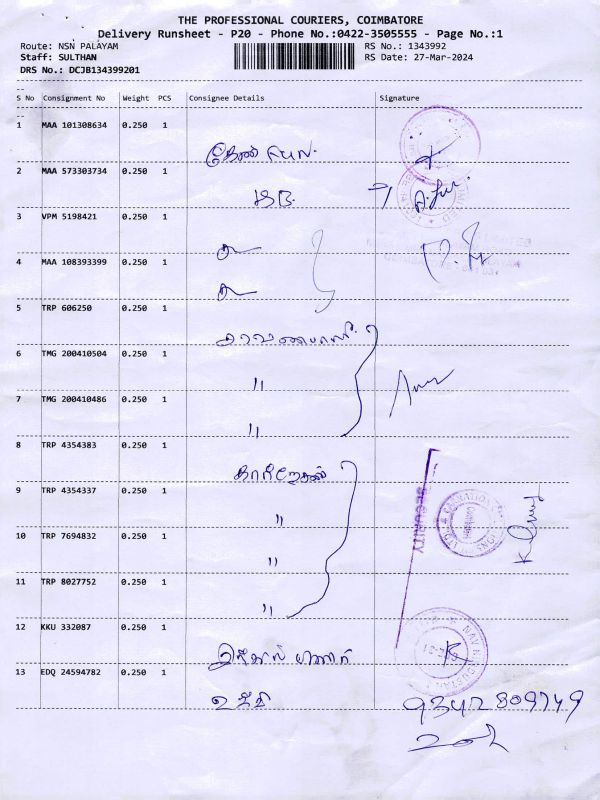 THE PROFESSIONAL COURIERS, COIMBATORE
Delivery Runsheet - P20 - Phone No.:0422-3505555 - Page No.:1
Route: NSN PALAYAM RS No.: 1343992
Staff: SULTHAN RS Date: 27-Mar-2024
DRS No.: DCJB134399201
S No Consignment No Weight PCS Consignee Details Signature
1 MAA 101308634 0.250 1
2 MAA 573303734 0.250 1
3 VPM 5198421 0.250 1
4 MAA 108393399 0.250 1
5 TRP 606250 0.250 1
6 TMG 200410504 0.250 1
〃
7 TMG 200410486 0.250 1
〃
8 TRP 4354383 0.250 1
9 TRP 4354337 0.250 1
〃
10 TRP 7694832 0.250 1
〃
11 TRP 8027752 0.250 1
〃
SECURITY
12 KKU 332087 0.250 1
13 EDQ 24594782 0.250 1
9342809749